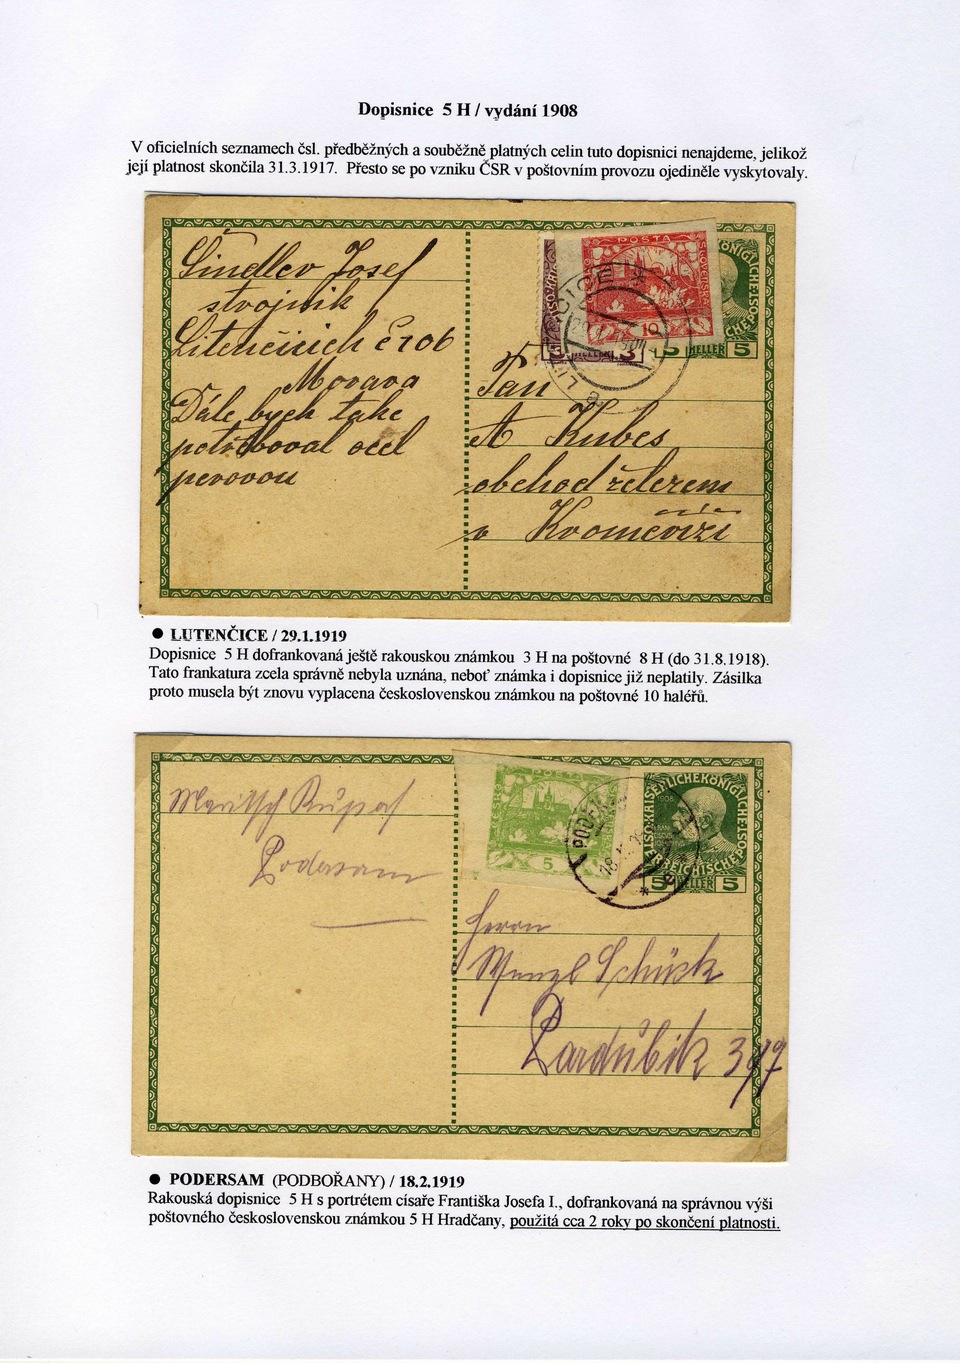 Dopisnice 5 H / vydání 1908
V oficielních seznamech čsl. předběžných a souběžně platných celin tuto dopisnici nenajdeme, jelikož
její platnost skončila 31.3.1917. Přesto se po vzniku ČSR v poštovním provozu ojediněle vyskytovaly.
Josef
strojnik
č 106
Morava
Dále bych take
potřeboval ocel
perovou
POŠTA
10
HELLER 3
5 HELLER 5
Pan
A Kubes
obchod železem
v Kromeřiži
● LUTENČICE / 29.1.1919
Dopisnice 5 H dofrankovaná ještě rakouskou známkou 3 H na poštovné 8 H (do 31.8.1918).
Tato frankatura zcela správně nebyla uznána, neboť známka i dopisnice již neplatily. Zásilka
proto musela být znovu vyplacena československou známkou na poštovné 10 haléřů.
POŠTA
5
1908
5 HELLER 5
Podersam
Herrn
Wenzl Schück
Pardubitz 347
● PODERSAM (PODBOŘANY) / 18.2.1919
Rakouská dopisnice 5 H s portrétem císaře Františka Josefa I., dofrankovaná na správnou výši
poštovného československou známkou 5 H Hradčany, použitá cca 2 roky po skončení platnosti.